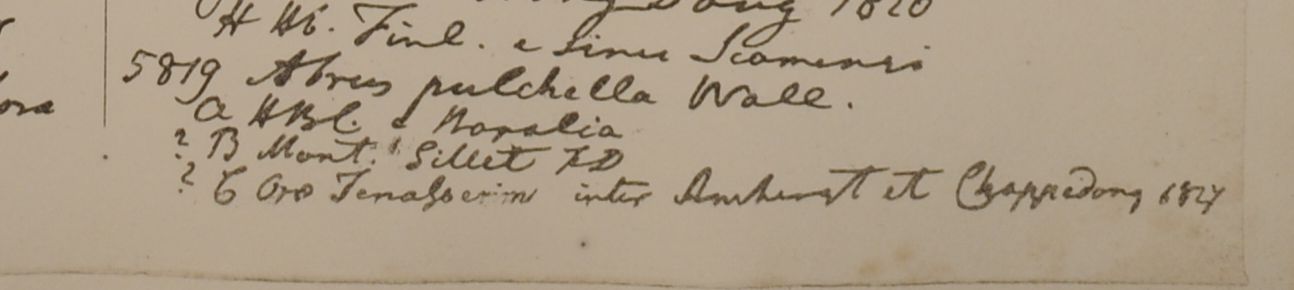 Dong 1826
H HB. Finl. e sinu Siamensi
5819 Abrus pulchella Wall.
A HBC. e Noralia
? B Mont. Sillet FD
? C Ora Tenasserim inter Amherst et Chappedong 1827